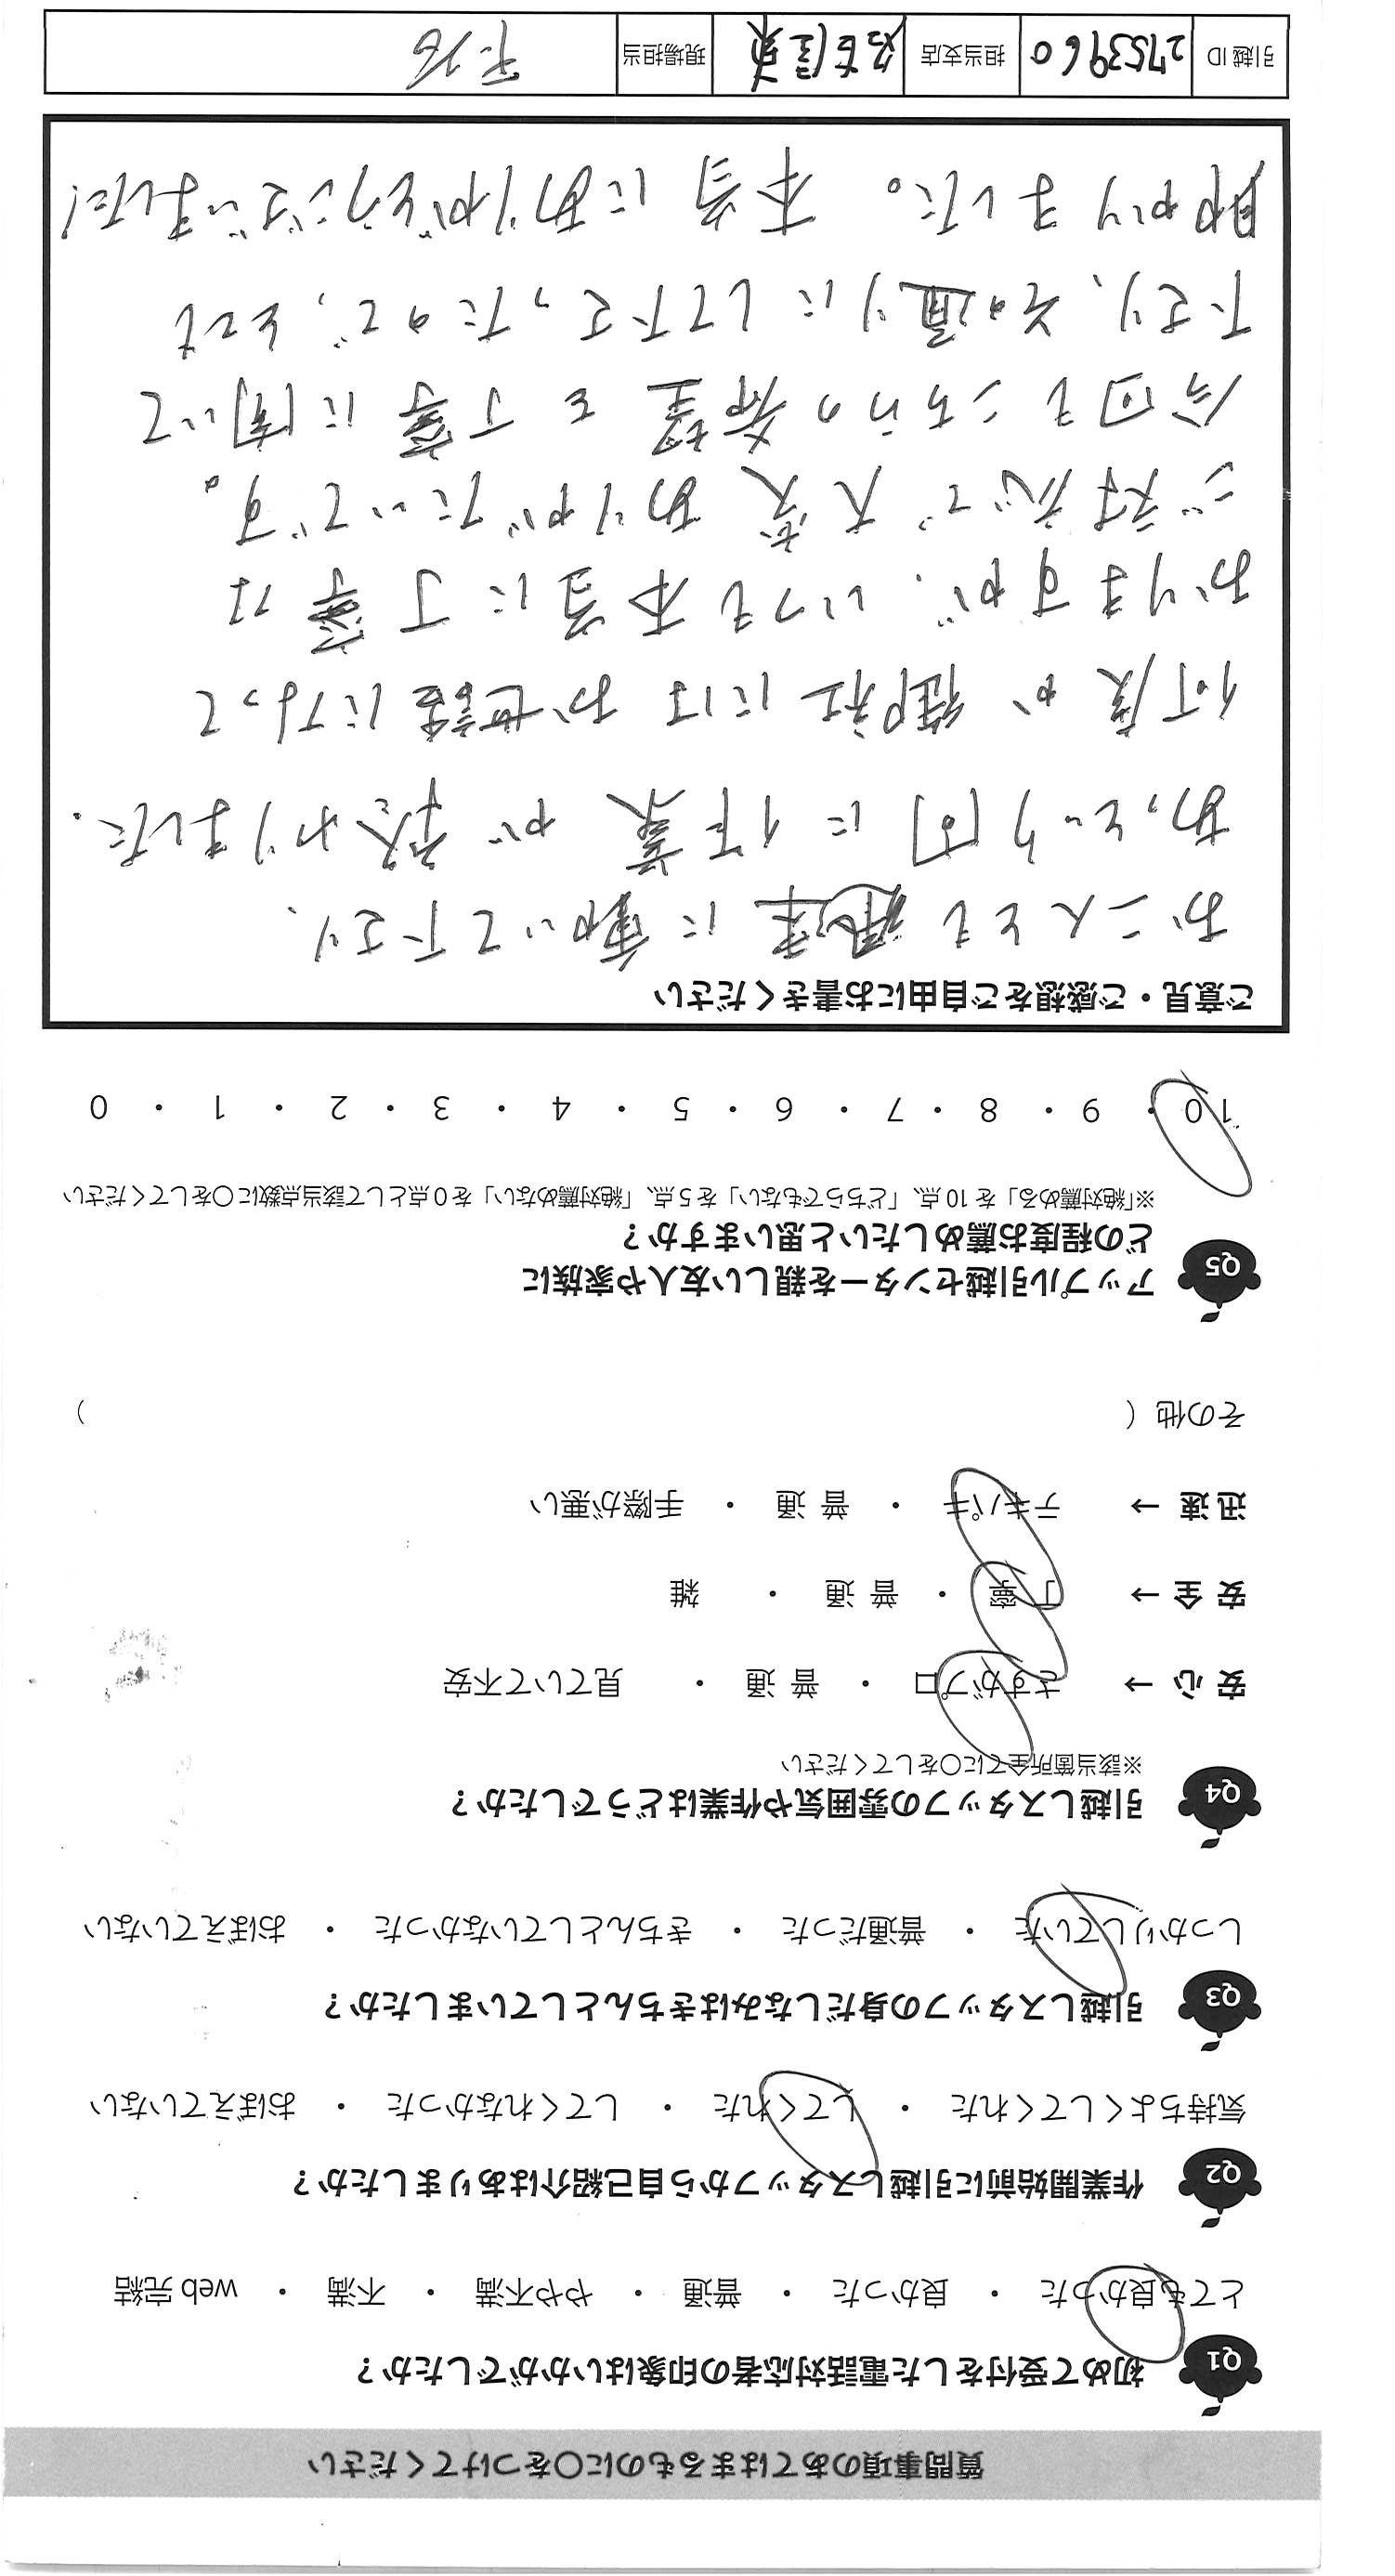 質問事項のあてはまるものに○をつけてください
Q1 初めて受付をした電話対応者の印象はいかがでしたか？
とても良かった ・ 良かった ・ 普通 ・ やや不満 ・ 不満 ・ web 完結
Q2 作業開始前に引越しスタッフから自己紹介はありましたか？
気持ちよくしてくれた ・ してくれた ・ してくれなかった ・ おぼえていない
Q3 引越しスタッフの身だしなみはきちんとしていましたか？
しっかりしていた ・ 普通だった ・ きちんとしていなかった ・ おぼえていない
Q4 引越しスタッフの雰囲気や作業はどうでしたか？
※該当箇所全てに○をしてください
安心 → さすがプロ ・ 普通 ・ 見ていて不安
安全 → 丁寧 ・ 普通 ・ 雑
迅速 → テキパキ ・ 普通 ・ 手際が悪い
その他（ ）
Q5 アップル引越センターを親しい友人や家族に
どの程度お薦めしたいと思いますか？
※「絶対薦める」を 10 点、「どちらでもない」を 5 点、「絶対薦めない」を 0 点として該当点数に○をしてください
10 ・ 9 ・ 8 ・ 7 ・ 6 ・ 5 ・ 4 ・ 3 ・ 2 ・ 1 ・ 0
ご意見・ご感想をご自由にお書きください
お二人とも迅速に動いて下さり、
あっという間に作業が終わりました。
何度か御社にはお世話になって
おりますが、いつも本当に丁寧な
ご対応で大変ありがたいです。
今回もこちらの希望を丁寧に聞いて
下さり、その通りにして下さったので、とても
助かりました。本当にありがとうございました！
引越 ID 2753960 担当支店 名古屋東 現場担当